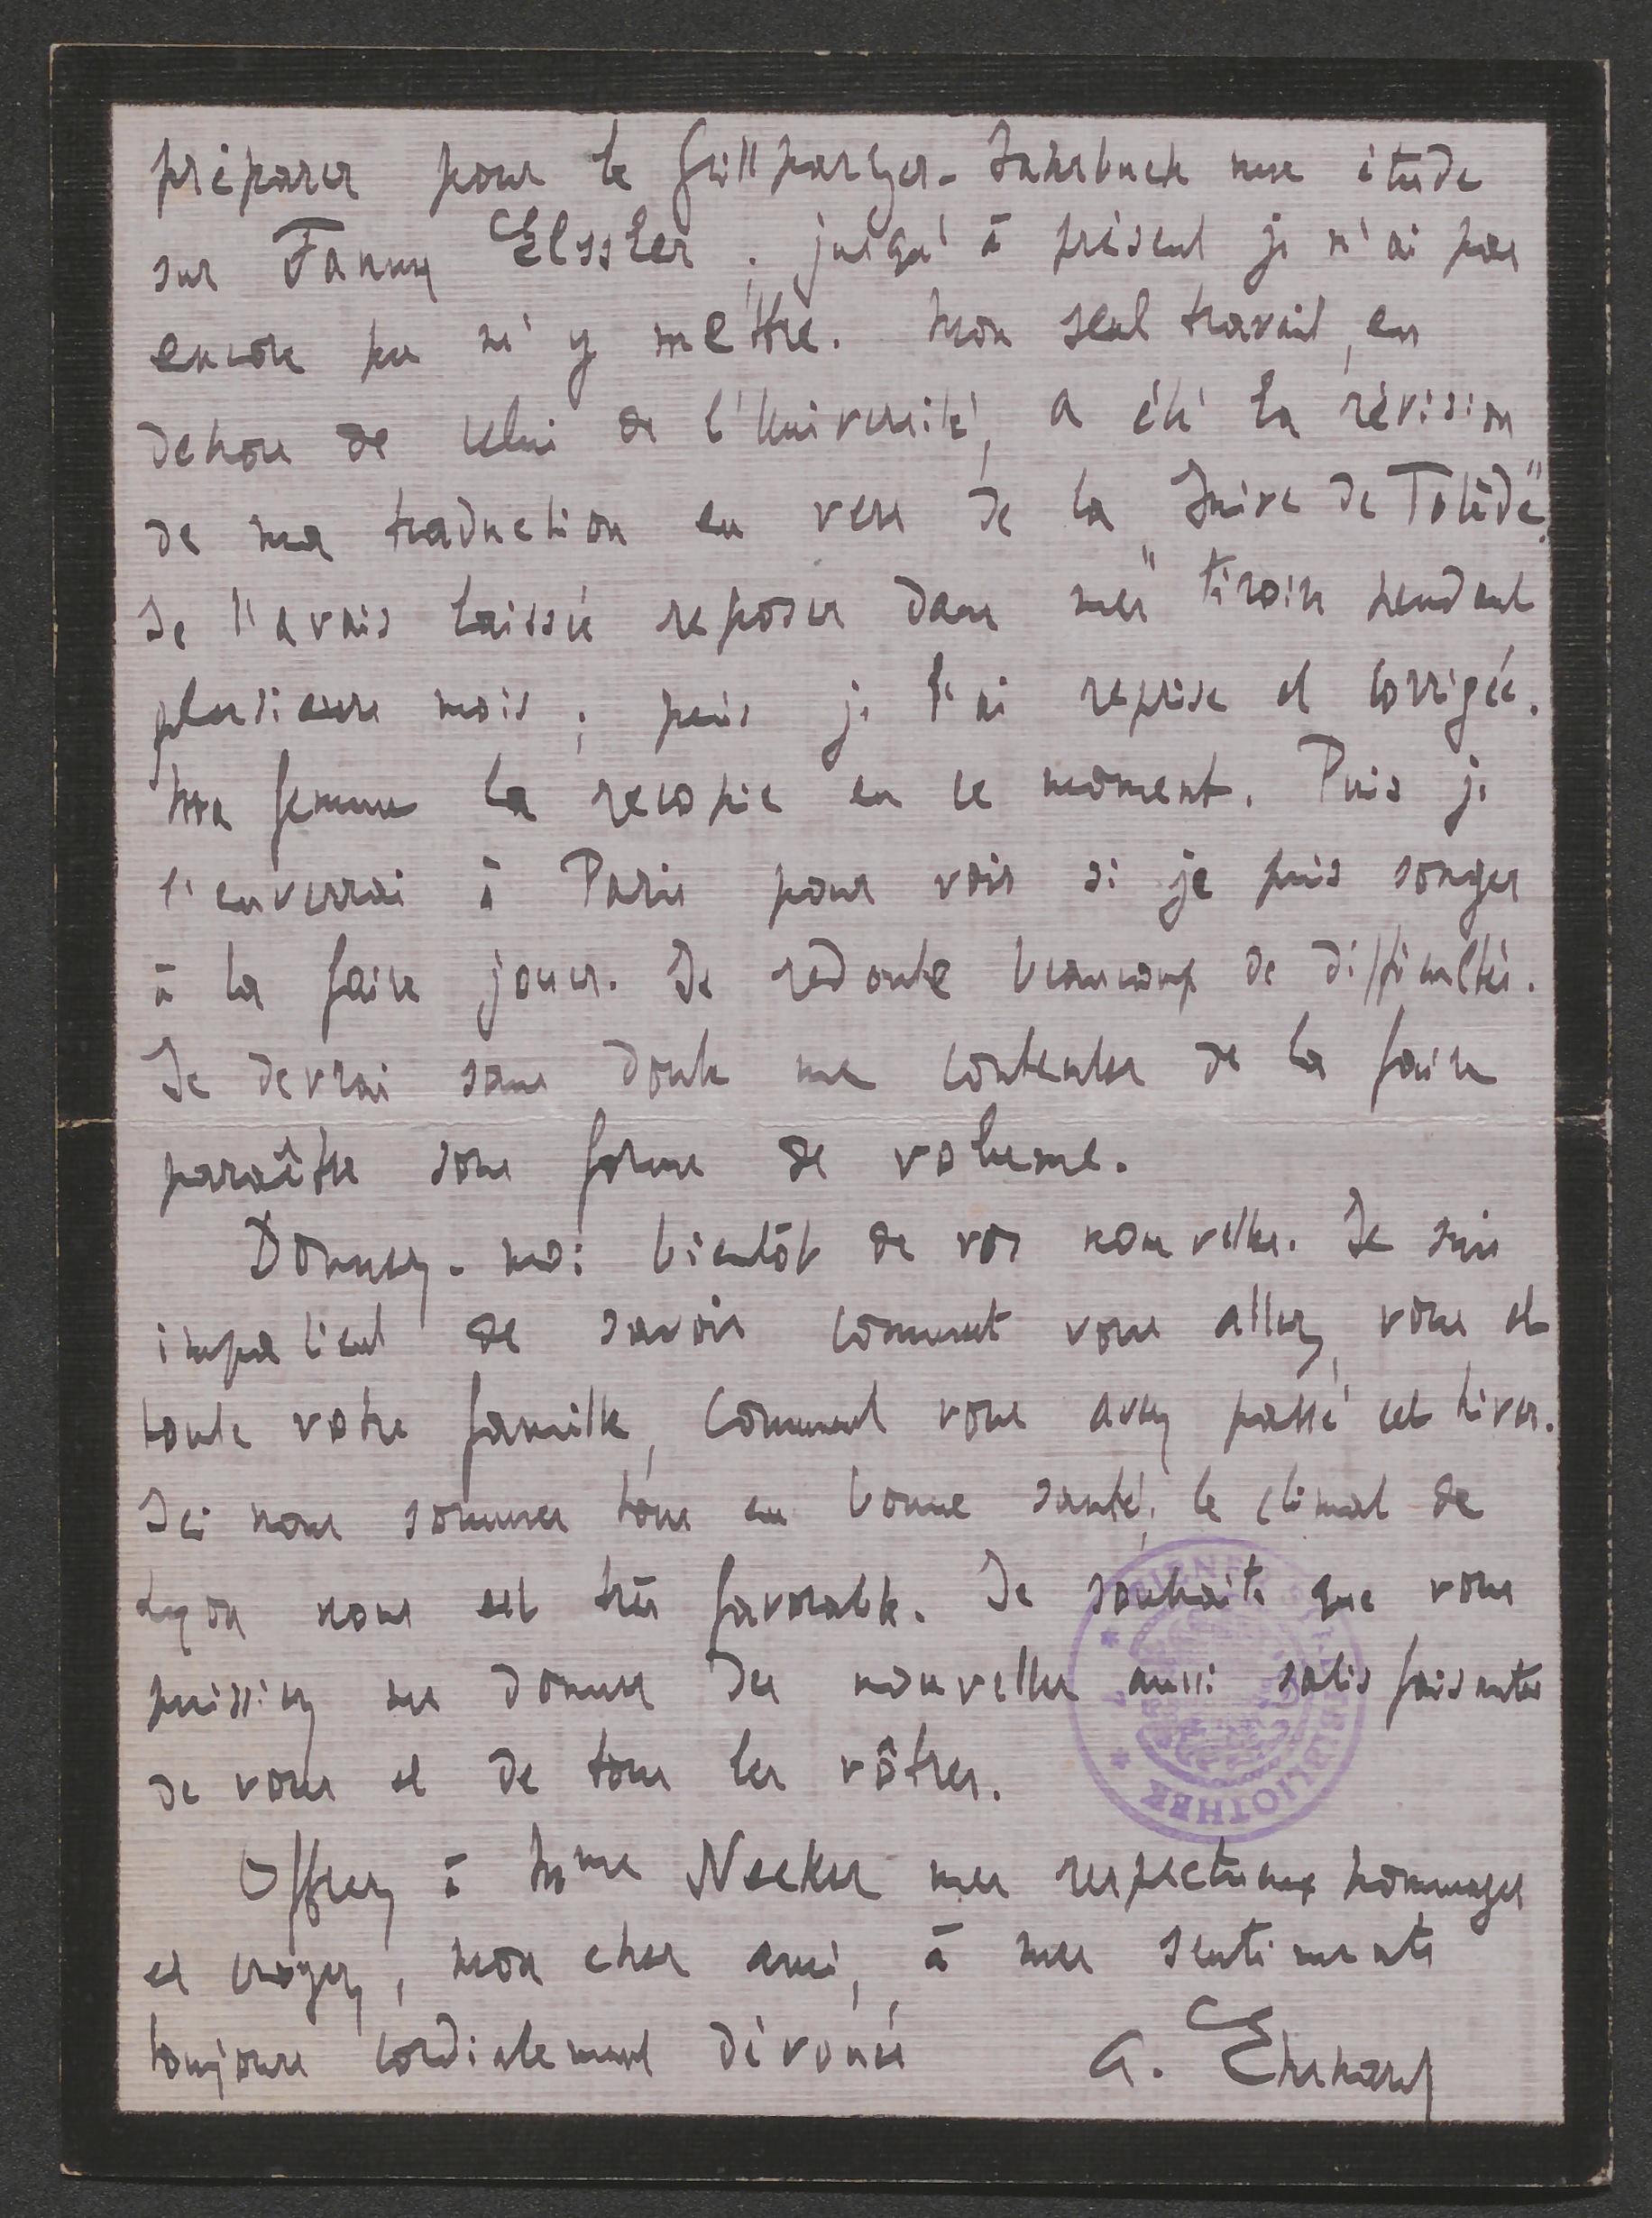 préparer pour le Grillparzer-Jahrbuch une étude
sur Fanny Elssler ; jusqu'à présent je n'ai pas
encore pu m'y mettre. Mon seul travail, en
dehors de celui de l'Université, a été la révision
de ma traduction en vers de la „Juive de Tolède".
Je l'avais laissée reposer dans mes tiroirs pendant
plusieurs mois ; puis je l'ai reprise et corrigée.
Ma femme la recopie en ce moment. Puis je
l'enverrai à Paris pour voir si je puis songer
à la faire jouer. Je redoute beaucoup de difficultés.
Je devrai sans doute me contenter de la faire
paraître sous forme de volume.
Donnez-moi bientôt de vos nouvelles. Je suis
impatient de savoir comment vous allez, vous et
toute votre famille, comment vous avez passé cet hiver.
Ici nous sommes tous en bonne santé ; le climat de
Lyon nous est très favorable. Je souhaite que vous
puissiez me donner des nouvelles aussi satisfaisantes
de vous et de tous les vôtres.
Offrez à Mme Necker mes respectueux hommages
et croyez, mon cher ami, à mes sentiments
toujours cordialement dévoués
A. Ehrhard
BIBLIOTHEK